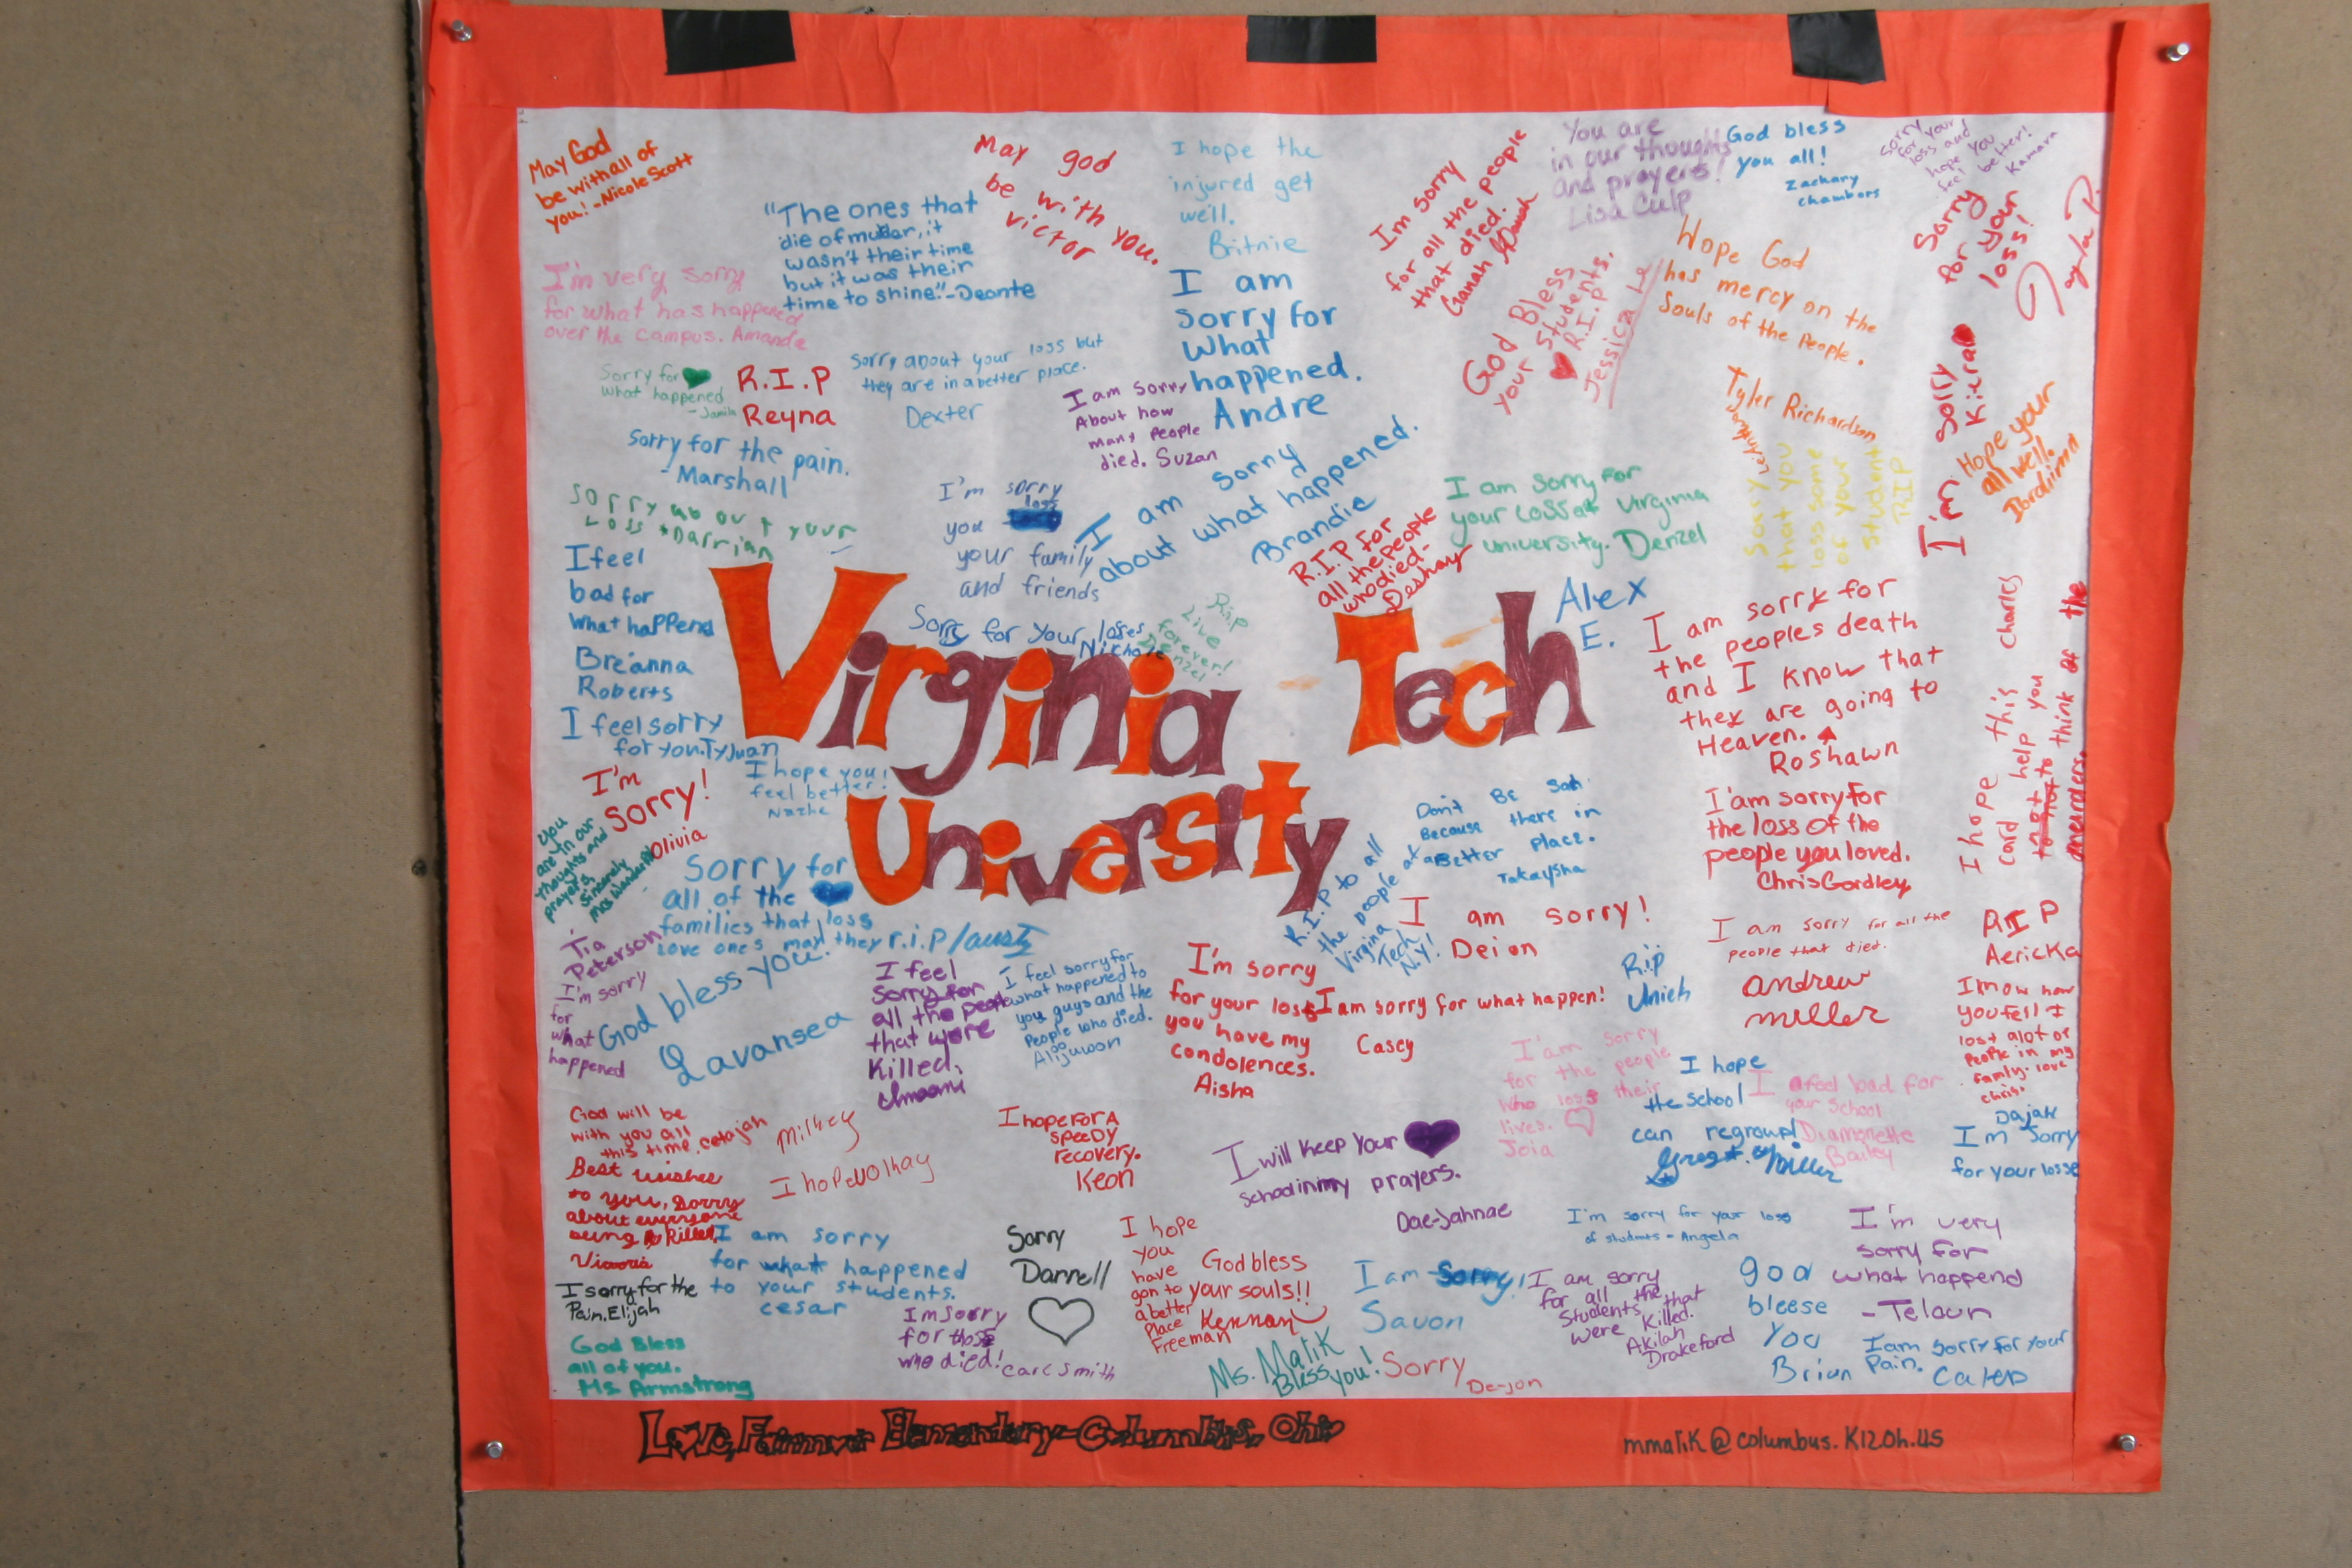 May God
be with all of
you! -Nicole Scott
"The ones that
die of murder, it
wasn't their time
but it was their
time to shine."-Deante
May god
be with you.
victor
I hope the
injured get
well.
Britnie
Im sorry
for all the people
that died.
You are
in our thoughts
and prayers!
Lisa Culp
God bless
you all!
Zachary
chambers
Sorry
for your
loss and
hope you
feel better!
Kamara
Sorry
for your
loss!
I'm very sorry
for what has happened
over the campus. Amanda
I am
sorry for
what
happened.
Andre
God Bless
your students.
R.I.P
Jessica Le
Hope God
has mercy on the
Souls of the People.
Tyler Richardson
I'm sorry
Kiera
Hope your
all well.
Sorry for
what happened
-Jamila
R.I.P
Reyna
Sorry about your loss but
they are in a better place.
Dexter
I am sorry
About how
many People
died. Suzan
Sorry for the pain.
-Marshall
Sorry about your
Loss *Darrian
I'm sorry
you loss
your family
and friends
I am sorry
about what happened.
Brandie
R.I.P for
all the people
who died-
Deshay
I am sorry for
your loss at Virginia
university. Denzel
Sorry
that you
loss some
of your
students
RIP
I feel
bad for
what happend
Bre'anna
Roberts
Sorry for your loses
R.i.p
Live
forever!
Denzel
Alex
E.
Virginia Tech
University
I am sorry for
the peoples death
and I know that
they are going to
Heaven.
Roshawn
I hope this
card help you
to not to think of the
meerders.
charles
I feel sorry
for you.TyJuan
I'm
sorry!
Olivia
I hope you
feel better!
You
are in our
thoughts and
prayers,
Sincerely
Sorry for
all of the
families that loss
love ones may they r.i.p/
R.I.P to all
the people at
Virgina
Tech
N.Y!
Don't Be Sad
Because there in
a Better place.
Takaysha
I'am sorry for
the loss of the
people you loved.
Chris Gordley
I am sorry!
Deion
I am sorry for all the
people that died.
andrew
miller
RIP
Aericka
Tia
Peterson
I'm sorry
for
what
happened
God bless you!
Lavansea
I feel
sorry for
all the people
that were
killed.
I feel sorry for
what happened to
you guys and the
People who died.
Alijuwon
I'm sorry
for your loss
you have my
condolences.
Aisha
I am sorry for what happen!
Casey
R.i.p
Unieh
I'am sorry
for the people
who loss their
lives.
Joia
I hope
the school
can regroup!
Miller
I feel bad for
your school
Diamonette
Bailey
I mow how
you fell I
lost alot of
People in my
family. love
chris!
God will be
with you all
this time. cetajah
Milkey
I hope U Okay
Best wishes
to you, Sorry
about everyone
being killed.
I hope For A
speeDy
recovery.
Keon
I will keep your
school in my prayers.
Dae-Jahnae
Dajah
Im Sorry
for your losse
I sorry for the
Pain. Elijah
I am sorry
for what happened
to your students.
cesar
Sorry
Darnell
I hope
you
have
gon to
a better
Place
Freeman
God bless
your souls!!
Kennan
I am sorry!
Savon
I'm sorry for your loss
of students - Angela
I am sorry
for all the
students that
were killed.
Akilah
Drakeford
god
bleese
you
Brian
I'm very
sorry for
what happend
-Telaun
God Bless
all of you.
Ms. Armstrong
Im sorry
for those
who died! carl smith
Ms. Malik
Bless you!
Sorry
De-jon
I am sorry for your
Pain. Caleb
Love, Fairmoor Elementary-Columbus, Ohio
mmalik@columbus.K12.Oh.us